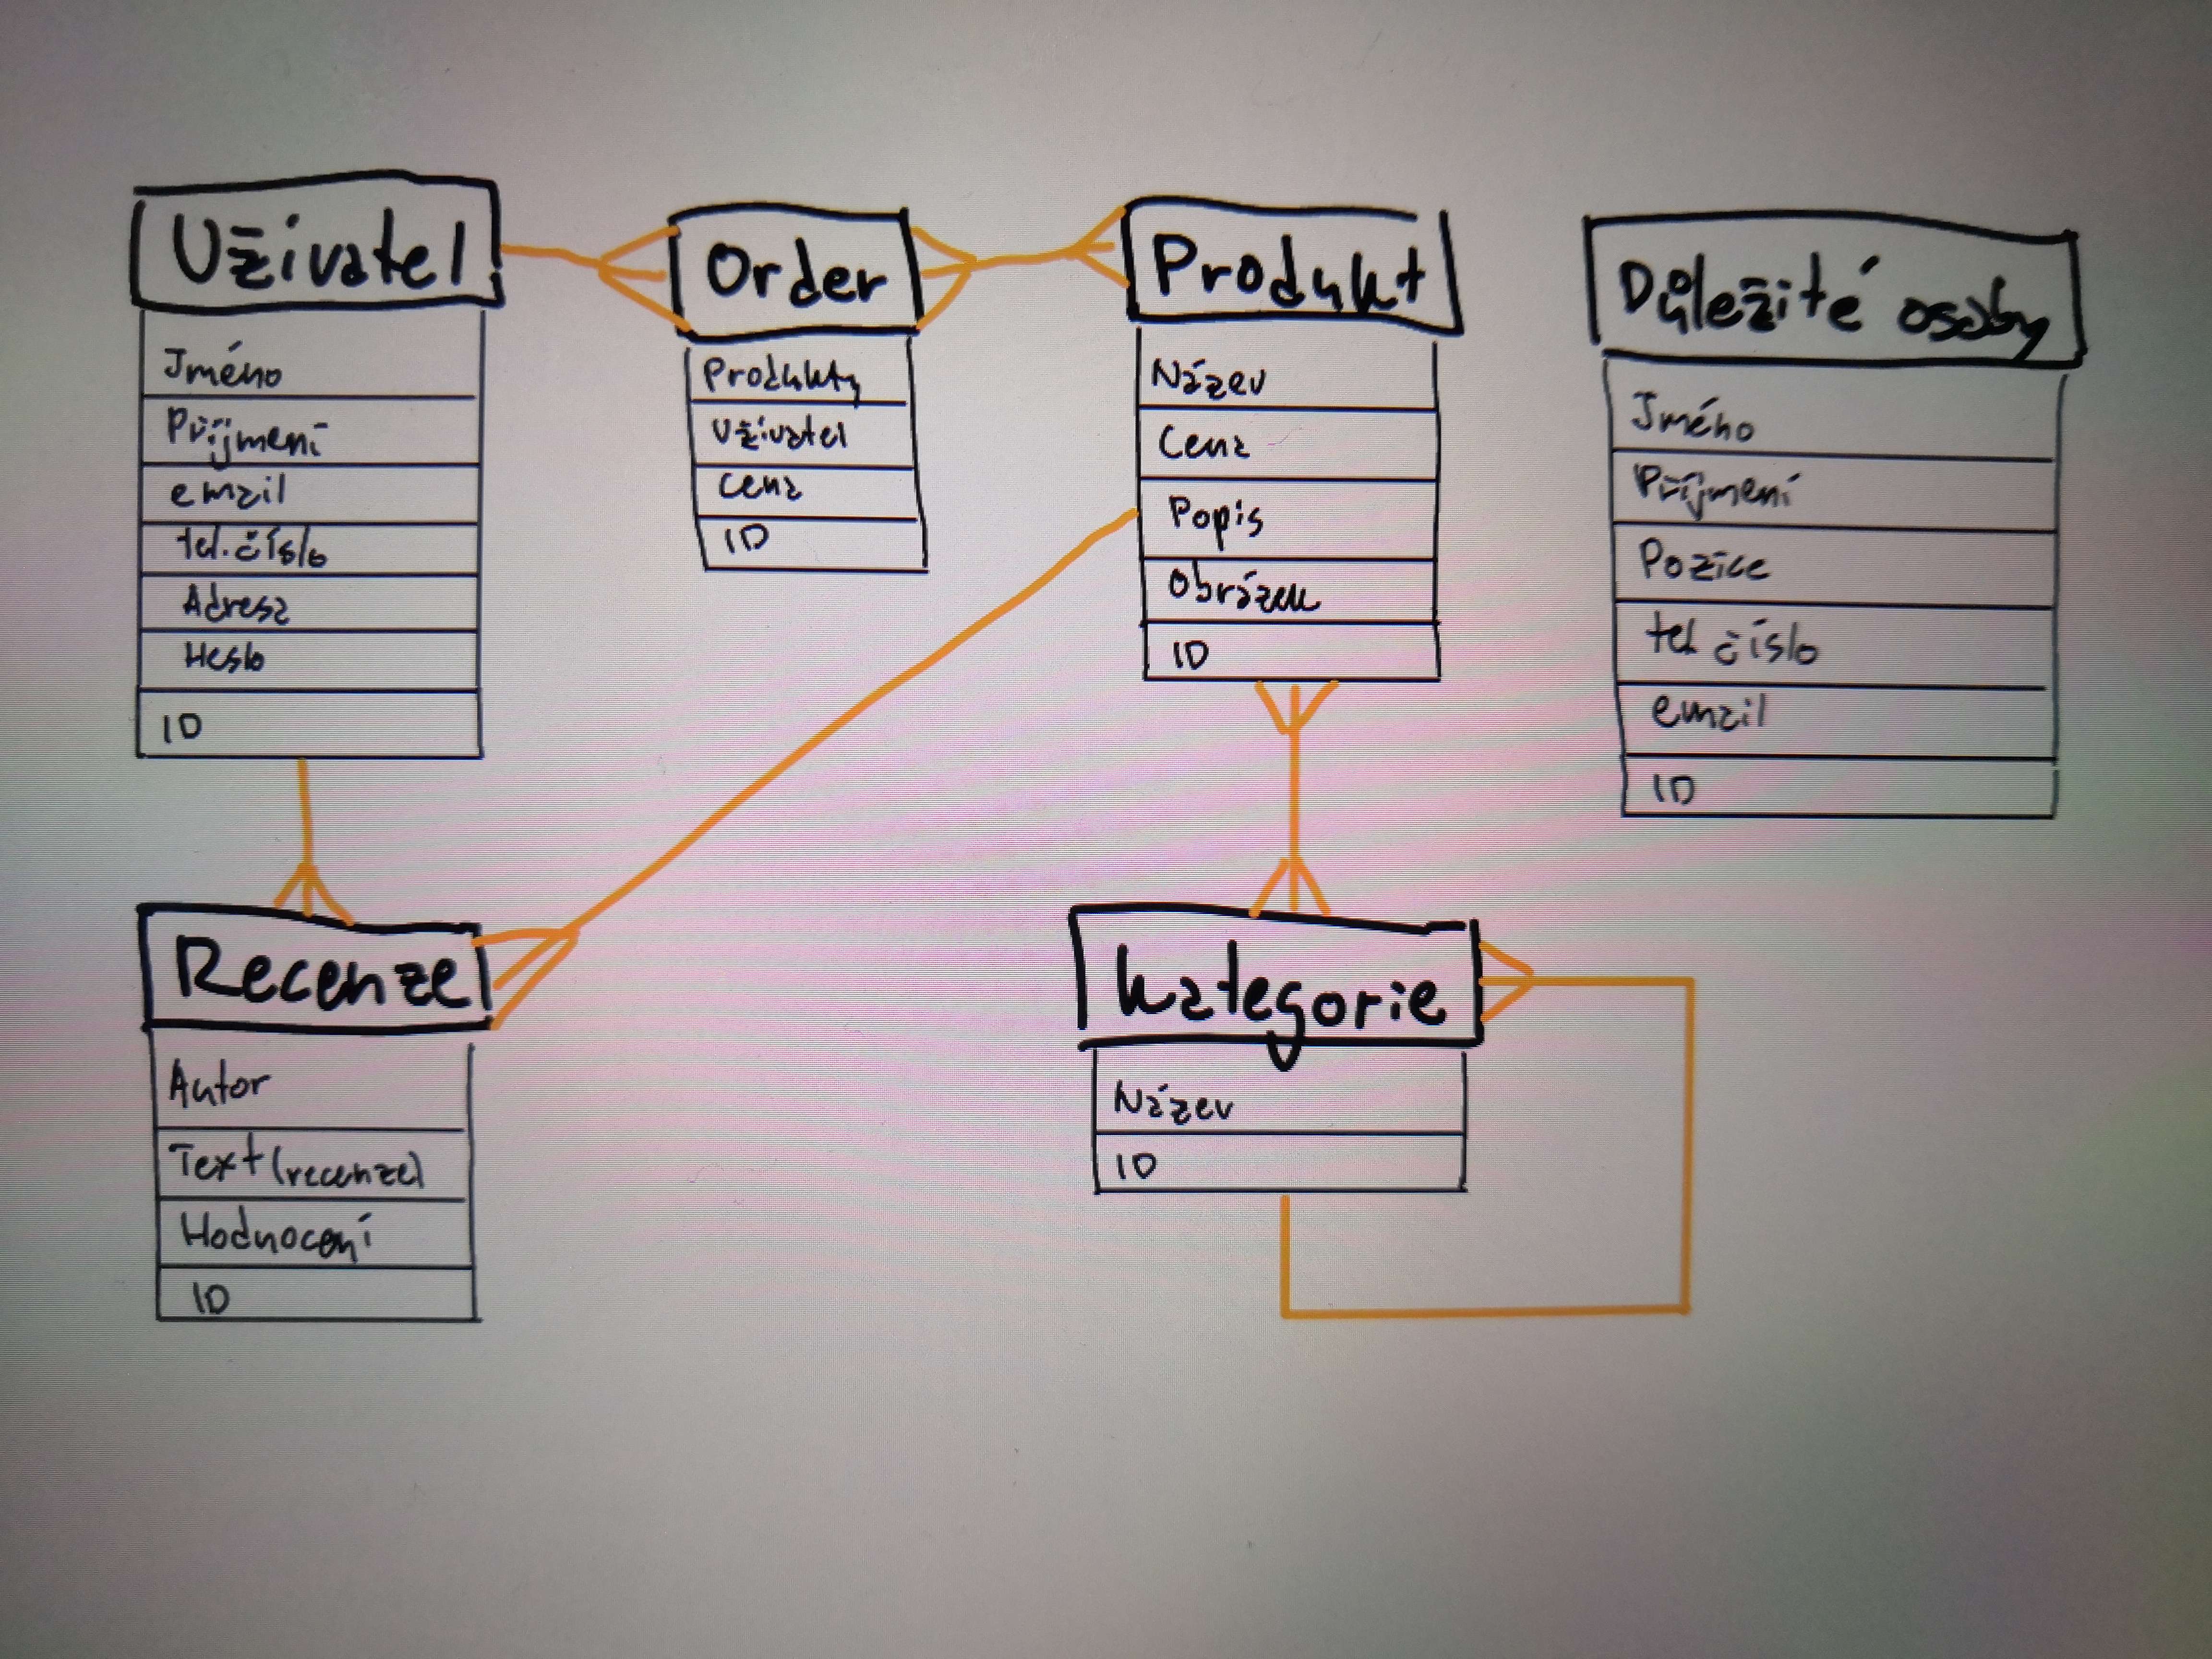 Uživatel
Jméno
Příjmení
email
tel. číslo
Adresa
Heslo
ID
Order
Produkty
Uživatel
Cena
ID
Produkt
Název
Cena
Popis
Obrázek
ID
Důležité osoby
Jméno
Příjmení
Pozice
tel číslo
email
ID
Recenze
Autor
Text (recenze)
Hodnocení
ID
Kategorie
Název
ID